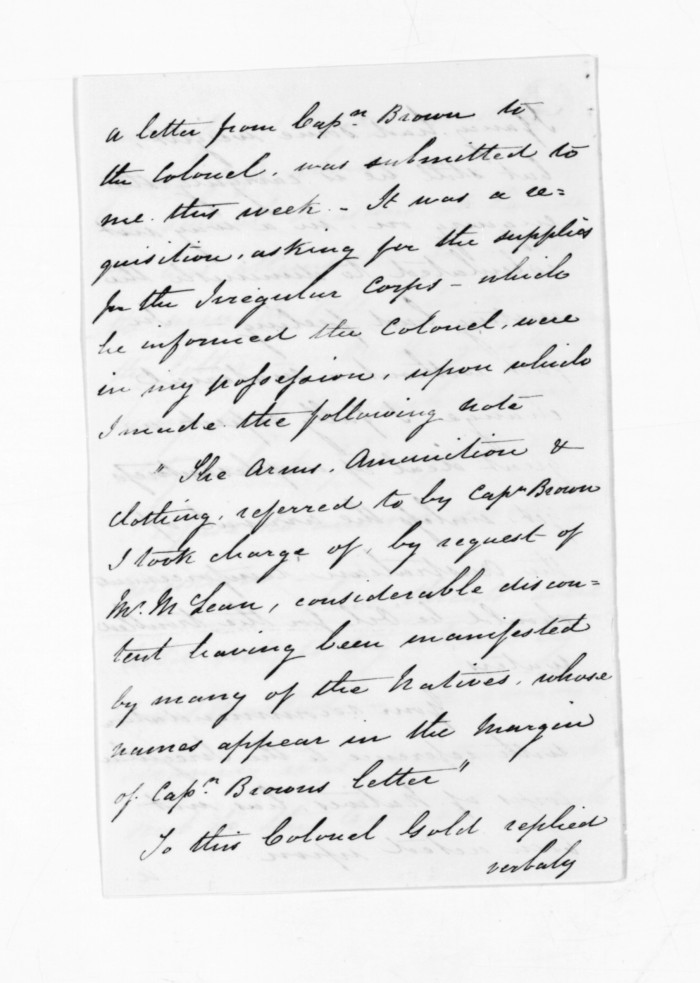 a letter from Capn Brown to
the Colonel, was submitted to
me this week - It was a re=
quisition, asking for the supplies
for the Irregular Corps - which
he informed the Colonel, were
in my possession, upon which
I made the following note
" The Arms, Amunition &
clothing, referred to by Capn Brown
I took charge of, by request of
Mr. McLean, considerable discon=
tent having been manifested
by many of the Natives, whose
names appear in the Margin
of Capn Browns letter"
To this Colonel Gold replied
verbaly